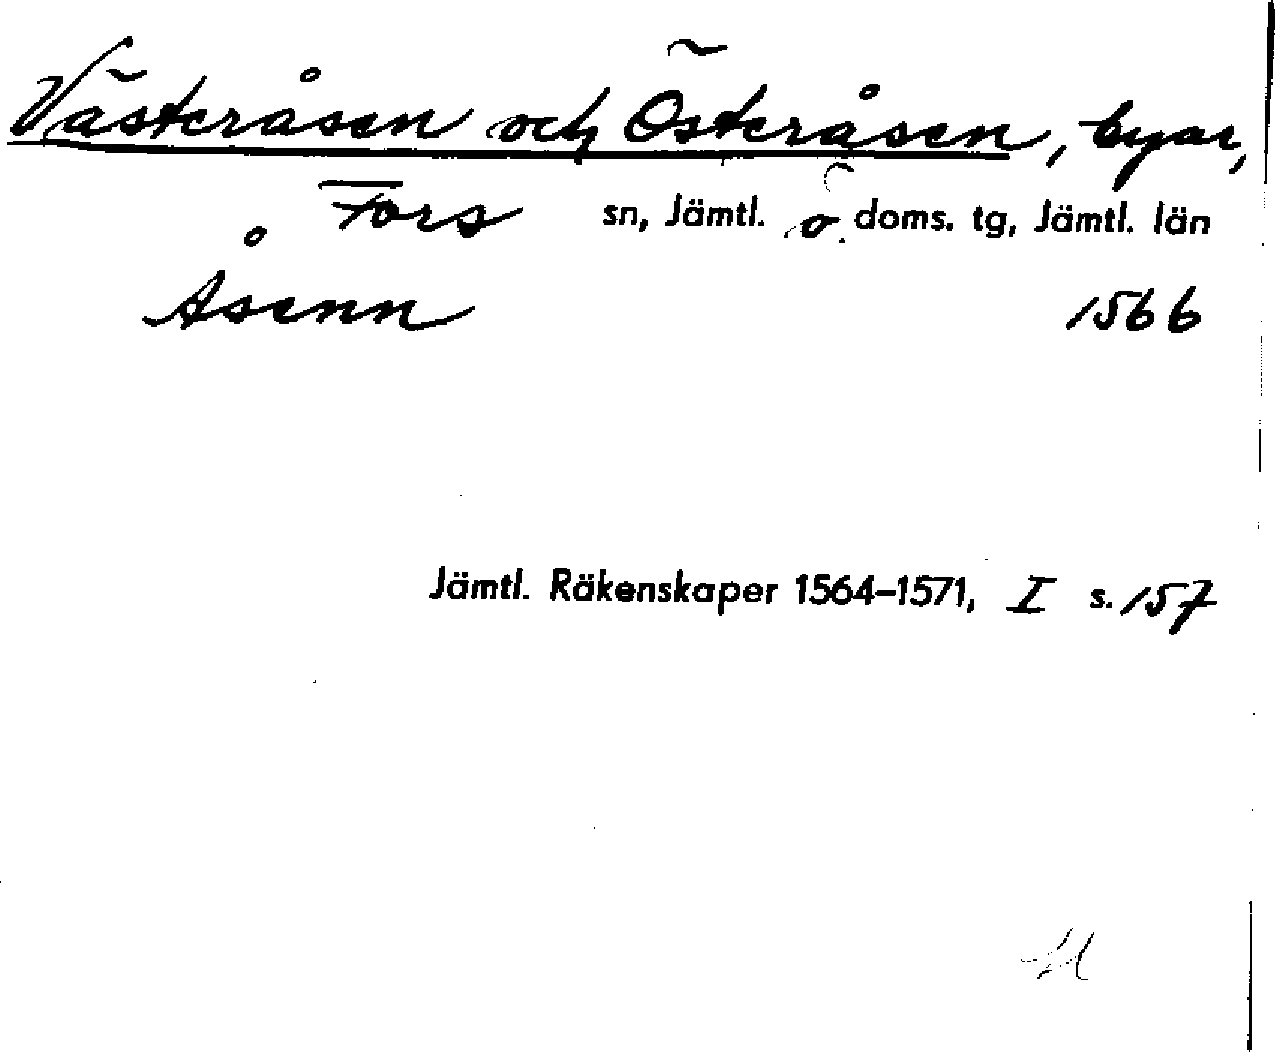 Västeråsen och Österåsen, byar,
Fors sn, Jämtl. ö. doms. tg, Jämtl. län
Åsenn 1566
Jämtl. Räkenskaper 1564–1571, I s. 157